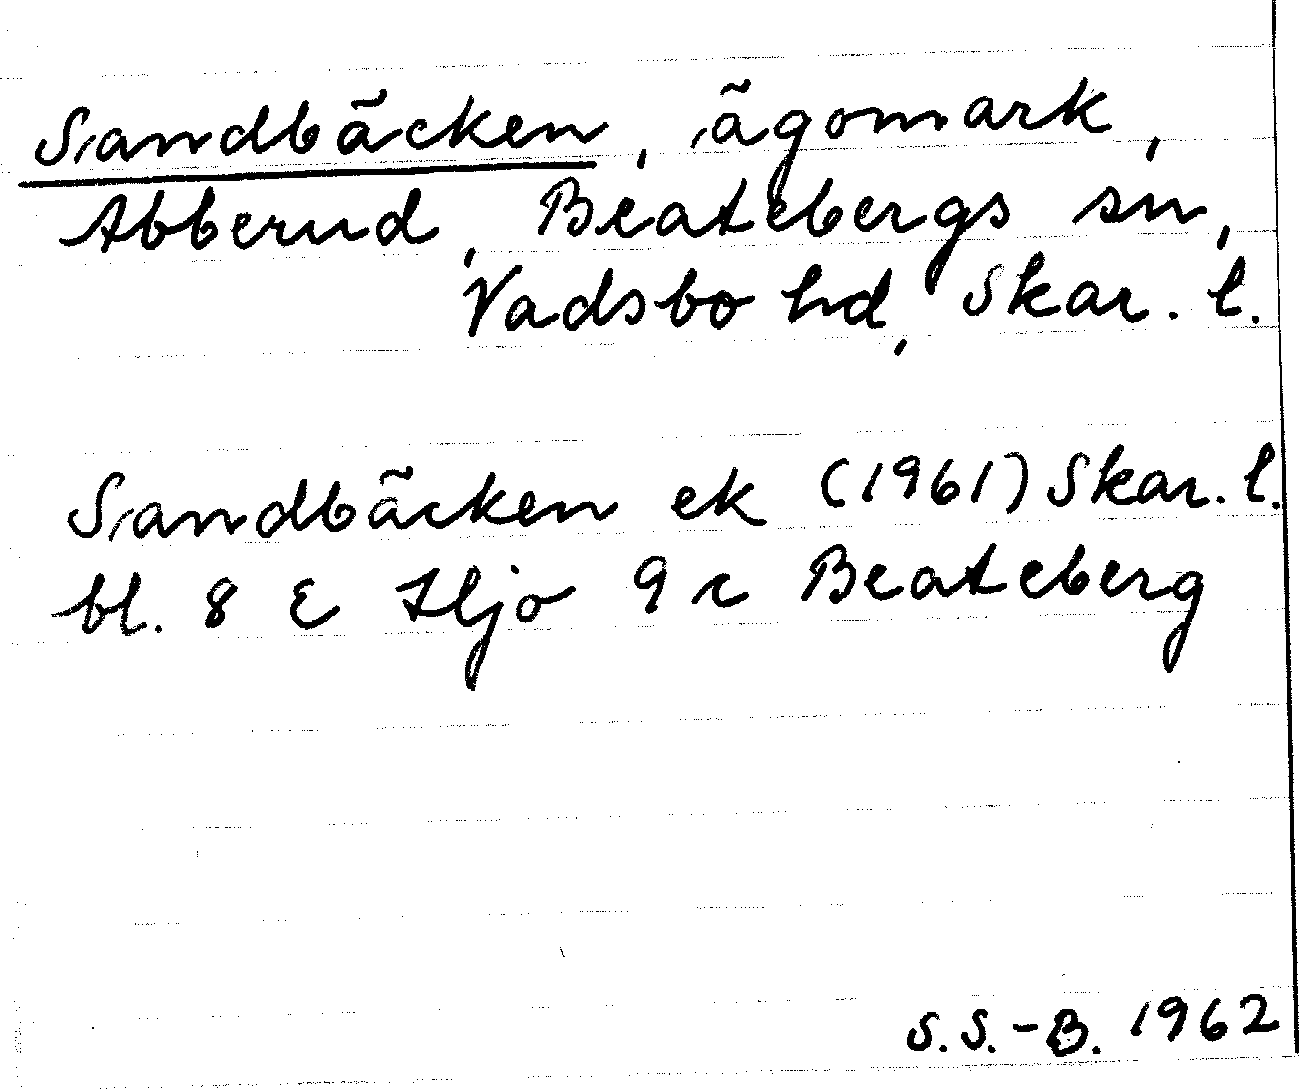 Sandbäcken, ägomark,
Abberud, Beatebergs sn,
Vadsbo hd, Skar. l.
Sandbäcken ek (1961) Skar. l.
bl. 8 E Hjo 9 c Beateberg
S. S.-B. 1962